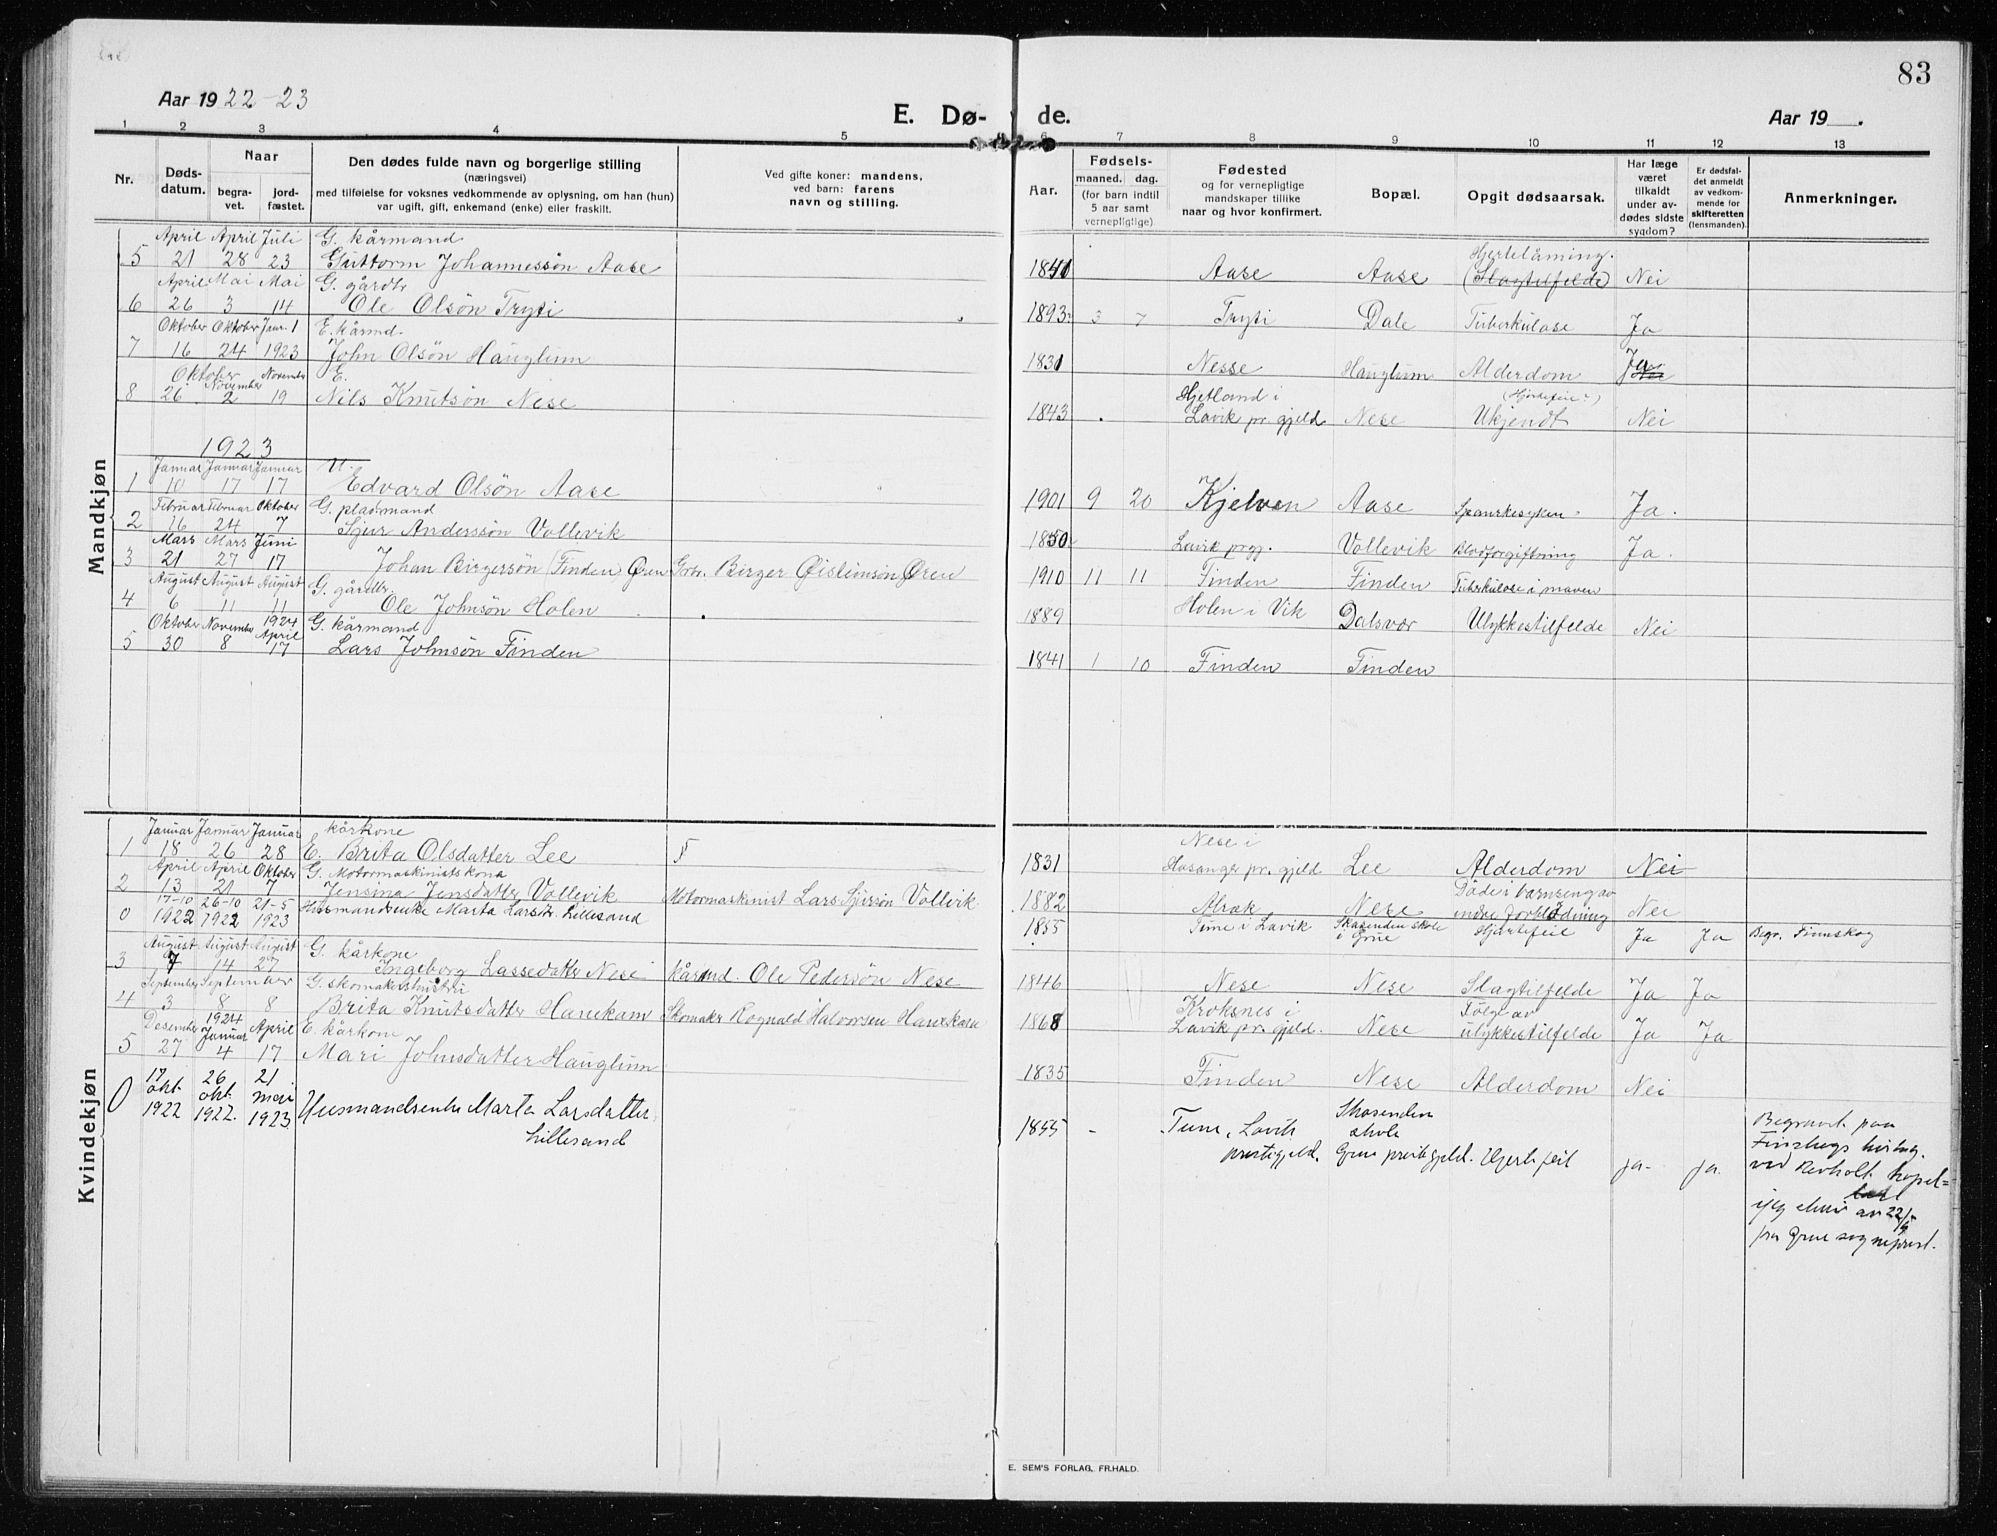 83
Aar 1922-23
E. Dø-
de.
Aar 19 .
1 2 3 4 5 6 7 8 9 10 11 12 13
Nr.
Døds-
datum.
Naar
begra-
vet.
jord-
fæstet.
Den dødes fulde navn og borgerlige stilling
(næringsvei)
med tilføielse for voksnes vedkommende av oplysning, om han (hun)
var ugift, gift, enkemand (enke) eller fraskilt.
Ved gifte koner: mandens,
ved barn: farens
navn og stilling.
Aar.
Fødsels-
maaned. dag.
(for barn indtil
5 aar samt
vernepligtige)
Fødested
og for vernepligtige
mandskaper tillike
naar og hvor konfirmert.
Bopæl.
Opgit dødsaarsak.
Har læge
været
tilkaldt
under av-
dødes sidste
sygdom?
Er dødsfal-
det anmeldt
av vedkom-
mende for
skifteretten
(lensmanden).
Anmerkninger.
Mandkjøn
April April Juli G. kårmand
5 21 28 23 Guttorm Johannessøn Aase 1841 Aase Aase Hjertelåming. (Slagtilfelde) Nei
April Mai Mai G. gårdbr
6 26 3 14 Ole Olsøn Tryti 1893 3 7 Tryti Dale Tuberkulose Ja
Oktober Oktober Jan. 1 E. kårmd.
7 16 24 1923 John Olsøn Hauglum 1831 Nesse Hauglum Alderdom Ja Nei
Oktober November November E.
8 26 2 19 Nils Knutsøn Nese 1843 Hjetland i Lavik pr. gjeld Nese Ukjendt Nei
1923
Januar Januar Januar U.
1 10 17 17 Edvard Olsøn Aase 1901 9 20 Kjelven Aase Ja.
Februar Februar Oktober G. pladsmand
2 16 24 7 Sjur Anderssøn Vollevik 1850 Lavik prgj. Vollevik Blodforgiftning Ja.
Mars Mars Juni
3 21 27 17 Johan Birgersøn (Finden) Øren Grbr. Birger Øisteinsøn Øren 1910 11 11 Finden Finden Tuberkulose i maven
August August August G. gårdbr.
4 6 11 11 Ole Johnsøn Holen 1889 Holen i Vik Dalsvær Ulykkestilfelde Nei
Oktober November 1924 April G. kårmand
5 30 8 17 Lars Johnsøn Finden 1841 1 10 Finden Finden
Kvindekjøn
Januar Januar Januar kårkone
1 18 26 28 E. Brita Olsdatter Lee 1831 Nese i Hosanger pr. gjeld Lee Alderdom Nei
April April Oktober G. Motormaskinistkona
2 13 21 7 Jensina Jensdatter Vollevik Motormaskinist Lars Sjursøn Vollvik 1882 Alrek Nese Døde i barnseng av indre forblødning Nei
17-10 26-10 21-5
0 1922 1922 1923 Husmandsenke Marta Larsdtr. Lillesand 1855 Tune i Lavik Skasenden skole i Grue Hjertefeil Ja Ja Begr. Finnskog
August August August G. kårkone
3 7 14 27 Ingeborg Lassedatter Nese kårmd. Ole Pedersøn Nese 1846 Nese Nese Slagtilfelde Ja Ja
September September G. skomakerhustru
4 3 8 8 Brita Knutsdatter Hanekam Skomaker Rognald Halvorsen Hanekam 1868 Kroksnes i Lavik pr. gjeld. Nese Følge av ulykkestilfelde Ja Ja
Desember 1924 Januar April E. kårkone
5 27 4 17 Mari Johnsdatter Hauglum 1835 Finden Nese Alderdom Nei
17 26 21
okt. okt. mai
0 1922 1922. 1923. Husmandsenke Marta Larsdatter Lillesand 1855 - Tune, Lavik prestegjeld. Skasenden skole Grue prestegjeld. Hjertefeil ja- ja.
Begravet paa
ved Revholt kapel=
av 22/5
fra Grue sogneprest.
E. SEM'S FORLAG, FR.HALD.